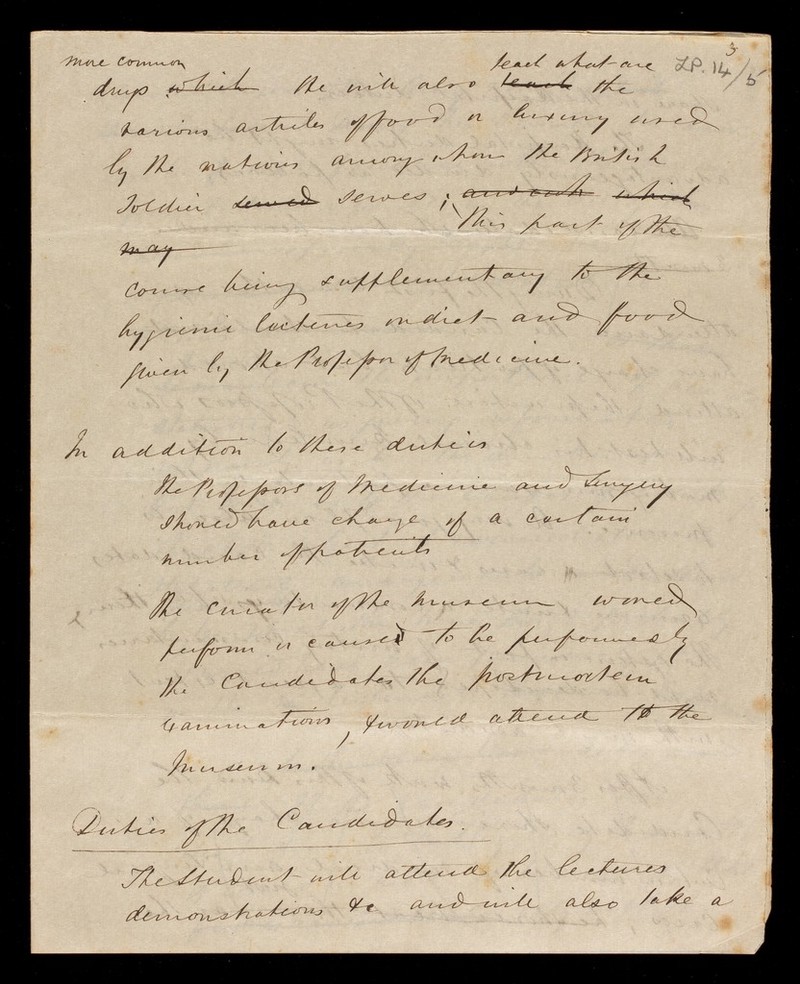 3
LP. 14/5
more common teach what are
drugs which He will also teach the
various articles of food or luxury used
by the nations among whom the British
Soldier served serves; and with which
may This part of the
course being supplementary to the
hygienic lectures on diet and food
given by the Professor of Medicine.
In addition to these duties
the Professors of Medicine and Surgery
should have charge of a certain
number of patients
The curator of the Museum would
perform or caused to be performed by
the Candidates the postmortem
examinations, & would attend to the
Museum.
Duties of the Candidates.
The Student will attend the lectures
demonstrations &c and will also take a